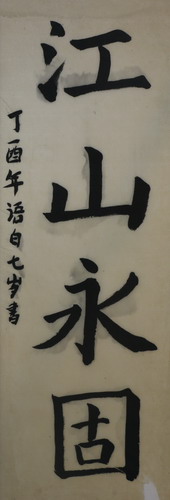 江山永固
丁酉年语白七岁书